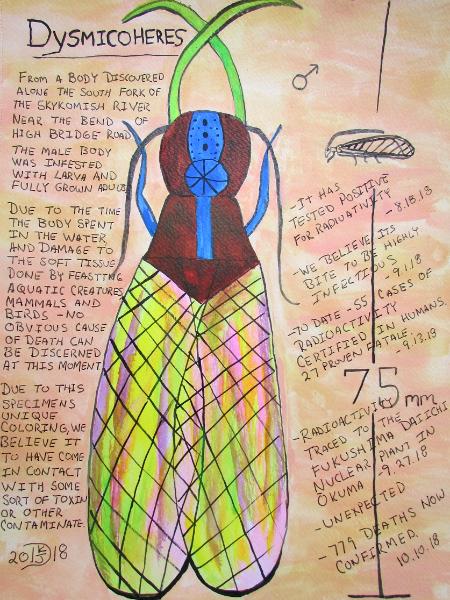 DYSMICOHERES
FROM A BODY DISCOVERED
ALONG THE SOUTH FORK OF
THE SKYKOMISH RIVER
NEAR THE BEND OF
HIGH BRIDGE ROAD
THE MALE BODY
WAS INFESTED
WITH LARVA AND
FULLY GROWN ADULTS
DUE TO THE TIME
THE BODY SPENT
IN THE WATER
AND DAMAGE TO
THE SOFT TISSUE
DONE BY FEASTING
AQUATIC CREATURES,
MAMMALS AND
BIRDS - NO
OBVIOUS CAUSE
OF DEATH CAN
BE DISCERNED
AT THIS MOMENT
DUE TO THIS
SPECIMENS
UNIQUE
COLORING, WE
BELIEVE IT
TO HAVE COME
IN CONTACT
WITH SOME
SORT OF TOXIN
OR OTHER
CONTAMINATE.
20 18
♂
-IT HAS
TESTED POSITIVE
FOR RADIOATIVITY
-8.18.18
-WE BELIEVE ITS
BITE TO BE HIGHLY
INFECTIOUS
-9.1.18
-TO DATE -55 CASES OF
RADIOACTIVITY
CERTIFIED IN HUMANS.
27 PROVEN FATALE.
-9.13.18
75mm
-RADIOACTIVITY
TRACED TO THE
FUKUSHIMA DAIICHI
NUCLEAR PLANT IN
ŌKUMA -9.27.18
-UNEXPECTED
-779 DEATHS NOW
CONFIRMED.
10.10.18